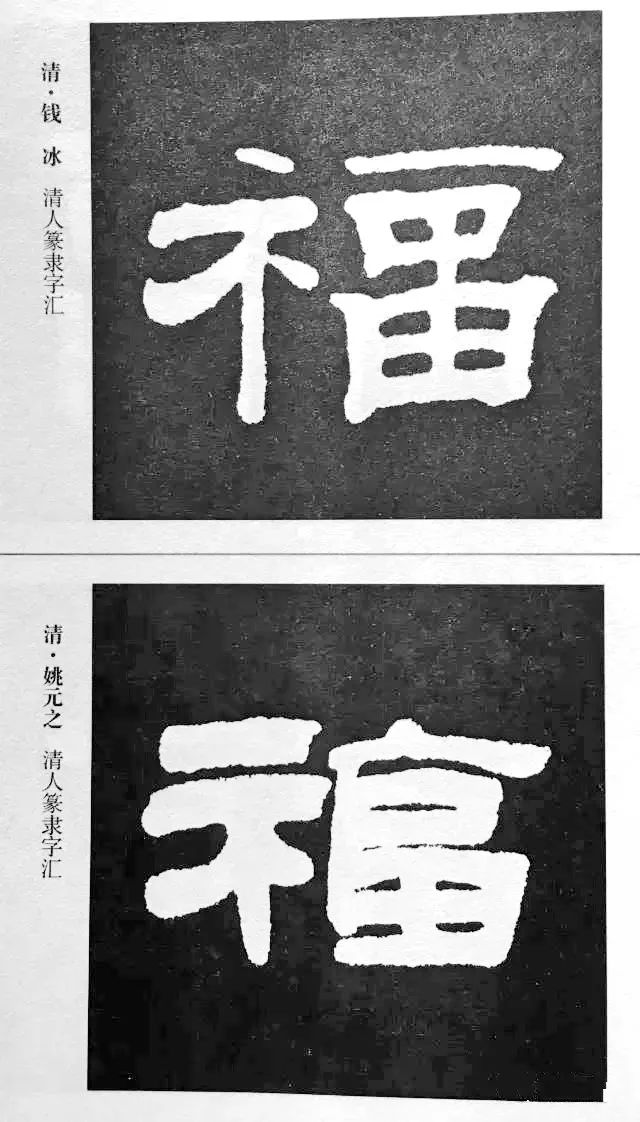 清·钱 冰 清人篆隶字汇
福
清·姚元之 清人篆隶字汇
福